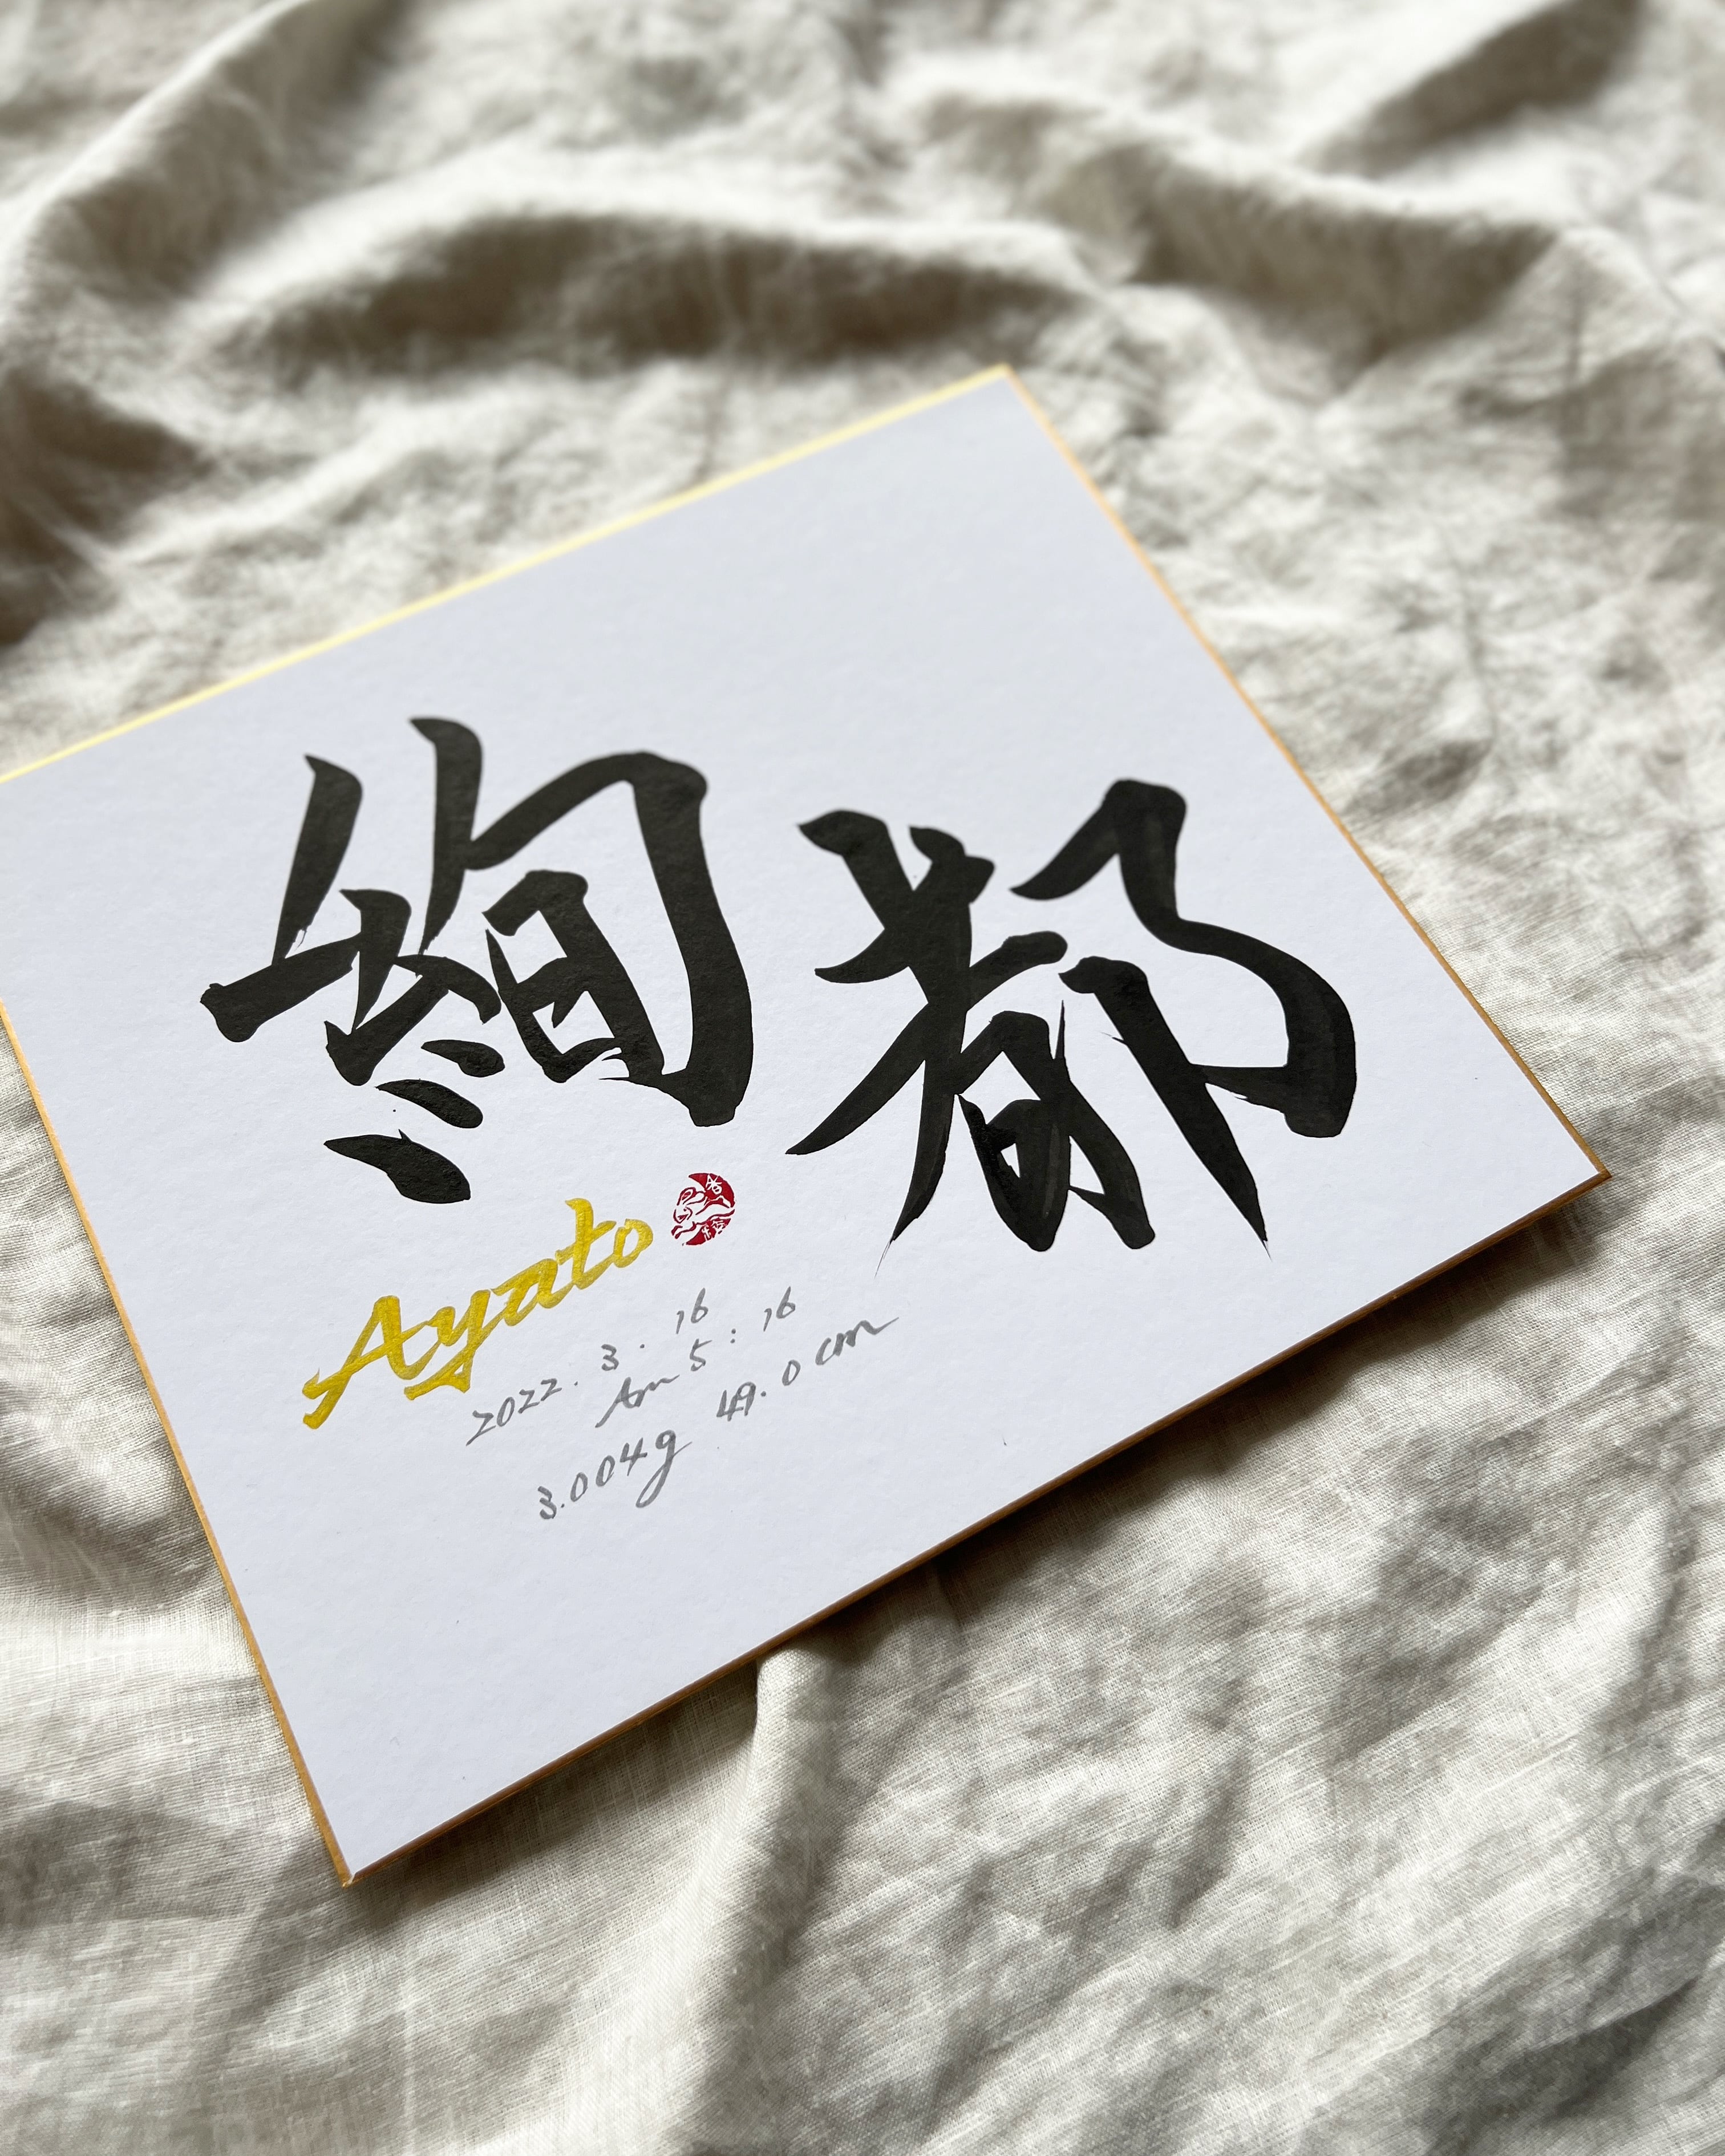 絢都
Ayato
2022.3.16
Am 5:16
3.004g 49.0cm